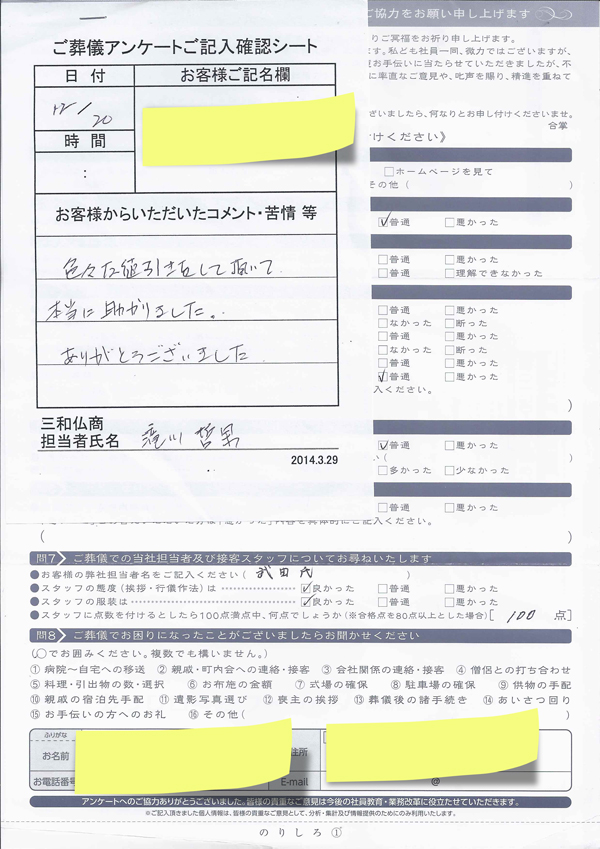 ご協力をお願い申し上げます
りご冥福をお祈り申し上げます。
ます。私ども社員一同、微力ではございますが、
お手伝いに当たらせていただきましたが、不
に率直なご意見や、叱声を賜り、精進を重ねて
ざいましたら、何なりとお申し付けくださいませ。
合掌
けください》
□ホームページを見て
その他（
普通 □悪かった
□普通 □悪かった
□普通 □理解できなかった
□普通 □悪かった
□なかった □断った
□普通 □悪かった
□なかった □断った
□普通 □悪かった
普通 □悪かった
入ください。
）
普通 □悪かった
い（
□多かった □少なかった
□普通 □悪かった
ご葬儀アンケートご記入確認シート
日付 お客様ご記名欄
12/20
時間
:
お客様からいただいたコメント・苦情 等
色々な値引きをして頂いて
本当に助かりました。
ありがとうございました
三和仏商
担当者氏名 滝川 哲男
2014.3.29
内容を具体的にご記入ください。
（ ）
問7 ご葬儀での当社担当者及び接客スタッフについてお尋ねいたします
●お客様の弊社担当者名をご記入ください（ 武田氏 ）
●スタッフの態度（挨拶・行儀作法）は 良かった □普通 □悪かった
●スタッフの服装は 良かった □普通 □悪かった
●スタッフに点数を付けるとしたら100点満点中、何点でしょうか（※合格点を80点以上とした場合）[ 100 点]
問8 ご葬儀でお困りになったことがございましたらお聞かせください
（○でお囲みください。複数でも構いません。）
①病院～自宅への移送 ②親戚・町内会への連絡・接客 ③会社関係の連絡・接客 ④僧侶との打ち合わせ
⑤料理・引出物の数・選択 ⑥お布施の金額 ⑦式場の確保 ⑧駐車場の確保 ⑨供物の手配
⑩親戚の宿泊先手配 ⑪遺影写真選び ⑫喪主の挨拶 ⑬葬儀後の諸手続き ⑭あいさつ回り
⑮お手伝いの方へのお礼 ⑯その他（ ）
ふりがな
お名前 住所
お電話番号 E-mail @
アンケートへのご協力ありがとうございました。皆様の貴重なご意見は今後の社員教育・業務改革に役立たせていただきます。
※ご記入頂きました個人情報は、皆様の貴重なご意見として、分析・集計及び情報提供のためにのみ利用いたします。
のりしろ①